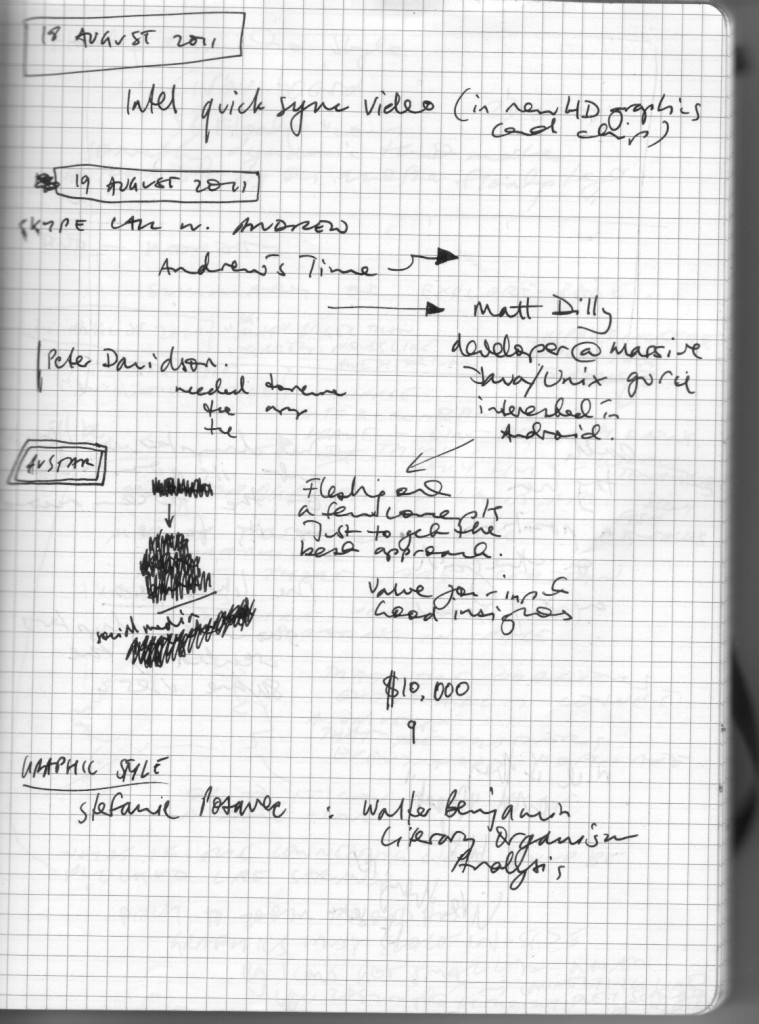 18 AUGUST 2011
Intel quick sync video (in new HD graphics
card chips)
19 AUGUST 2011
SKYPE CALL w. ANDREW
Andrew's Time
Matt Dilly
developer @ massive
Java/Unix guru
interested in
Android.
Peter Davidson.
needed
the app
the
AVSTAR
Fleshing out
a few concepts
Just to get the
best approach.
value your input
Good insights
social media
$10,000
9
GRAPHIC STYLE
Stefanie Posavec : Walter Benjamin
Literary Organism
Analysis